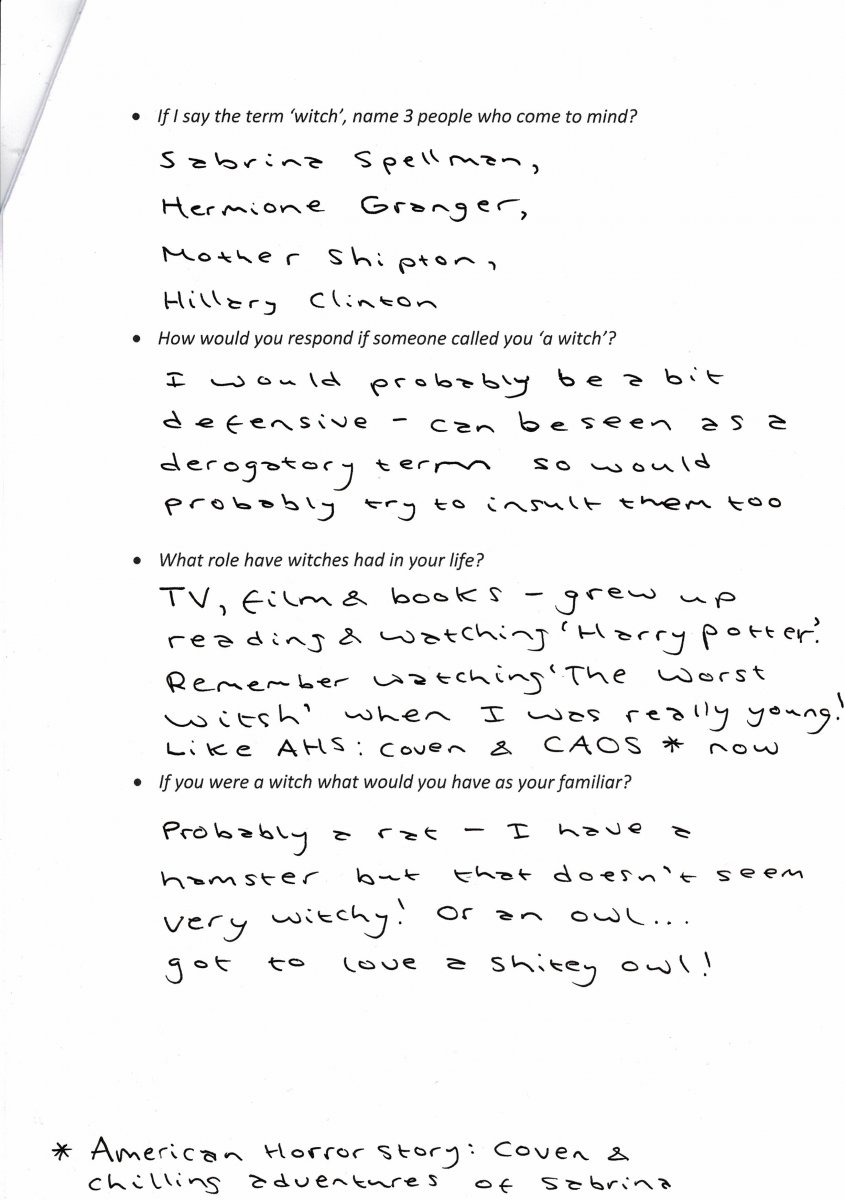 • If I say the term ‘witch’, name 3 people who come to mind?
Sabrina Spellman,
Hermione Granger,
Mother Shipton,
Hillary Clinton
• How would you respond if someone called you ‘a witch’?
I would probably be a bit
defensive – can be seen as a
derogatory term so would
probably try to insult them too
• What role have witches had in your life?
TV, film & books – grew up
reading & watching ‘Harry Potter’.
Remember watching ‘The Worst
Witsh’ when I was really young!
Like AHS: Coven & CAOS * now
• If you were a witch what would you have as your familiar?
Probably a rat – I have a
hamster but that doesn't seem
very witchy! Or an owl...
got to love a shitey owl!
* American Horror Story: Coven &
chilling adventures of Sabrina